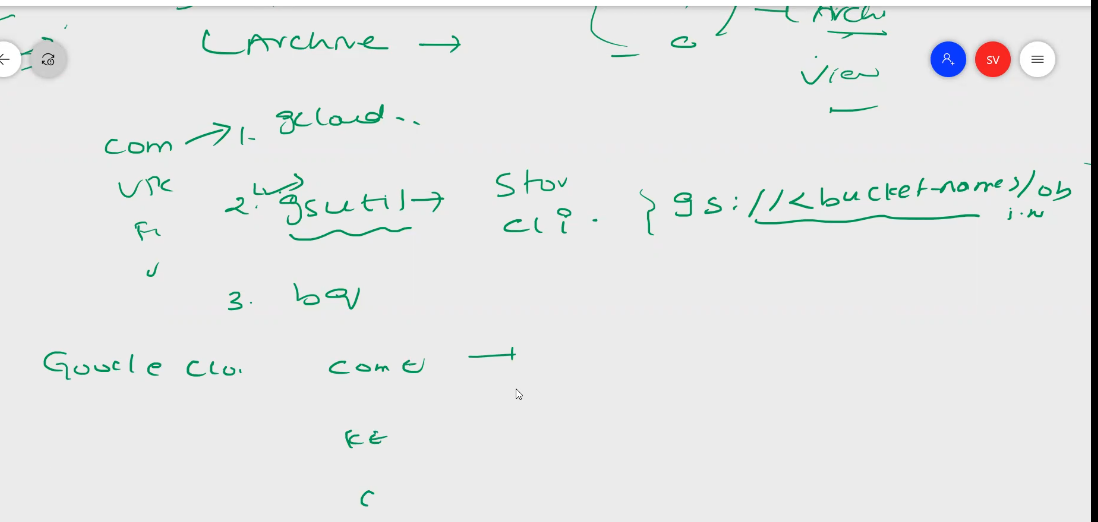 Archive →
View
com → 1. gcloud..
VPC
2. gsutil → Stor
cli. } gs://<bucket-name>/ob
Fi
3. bq
Google Clo. com E
KE
C
SV